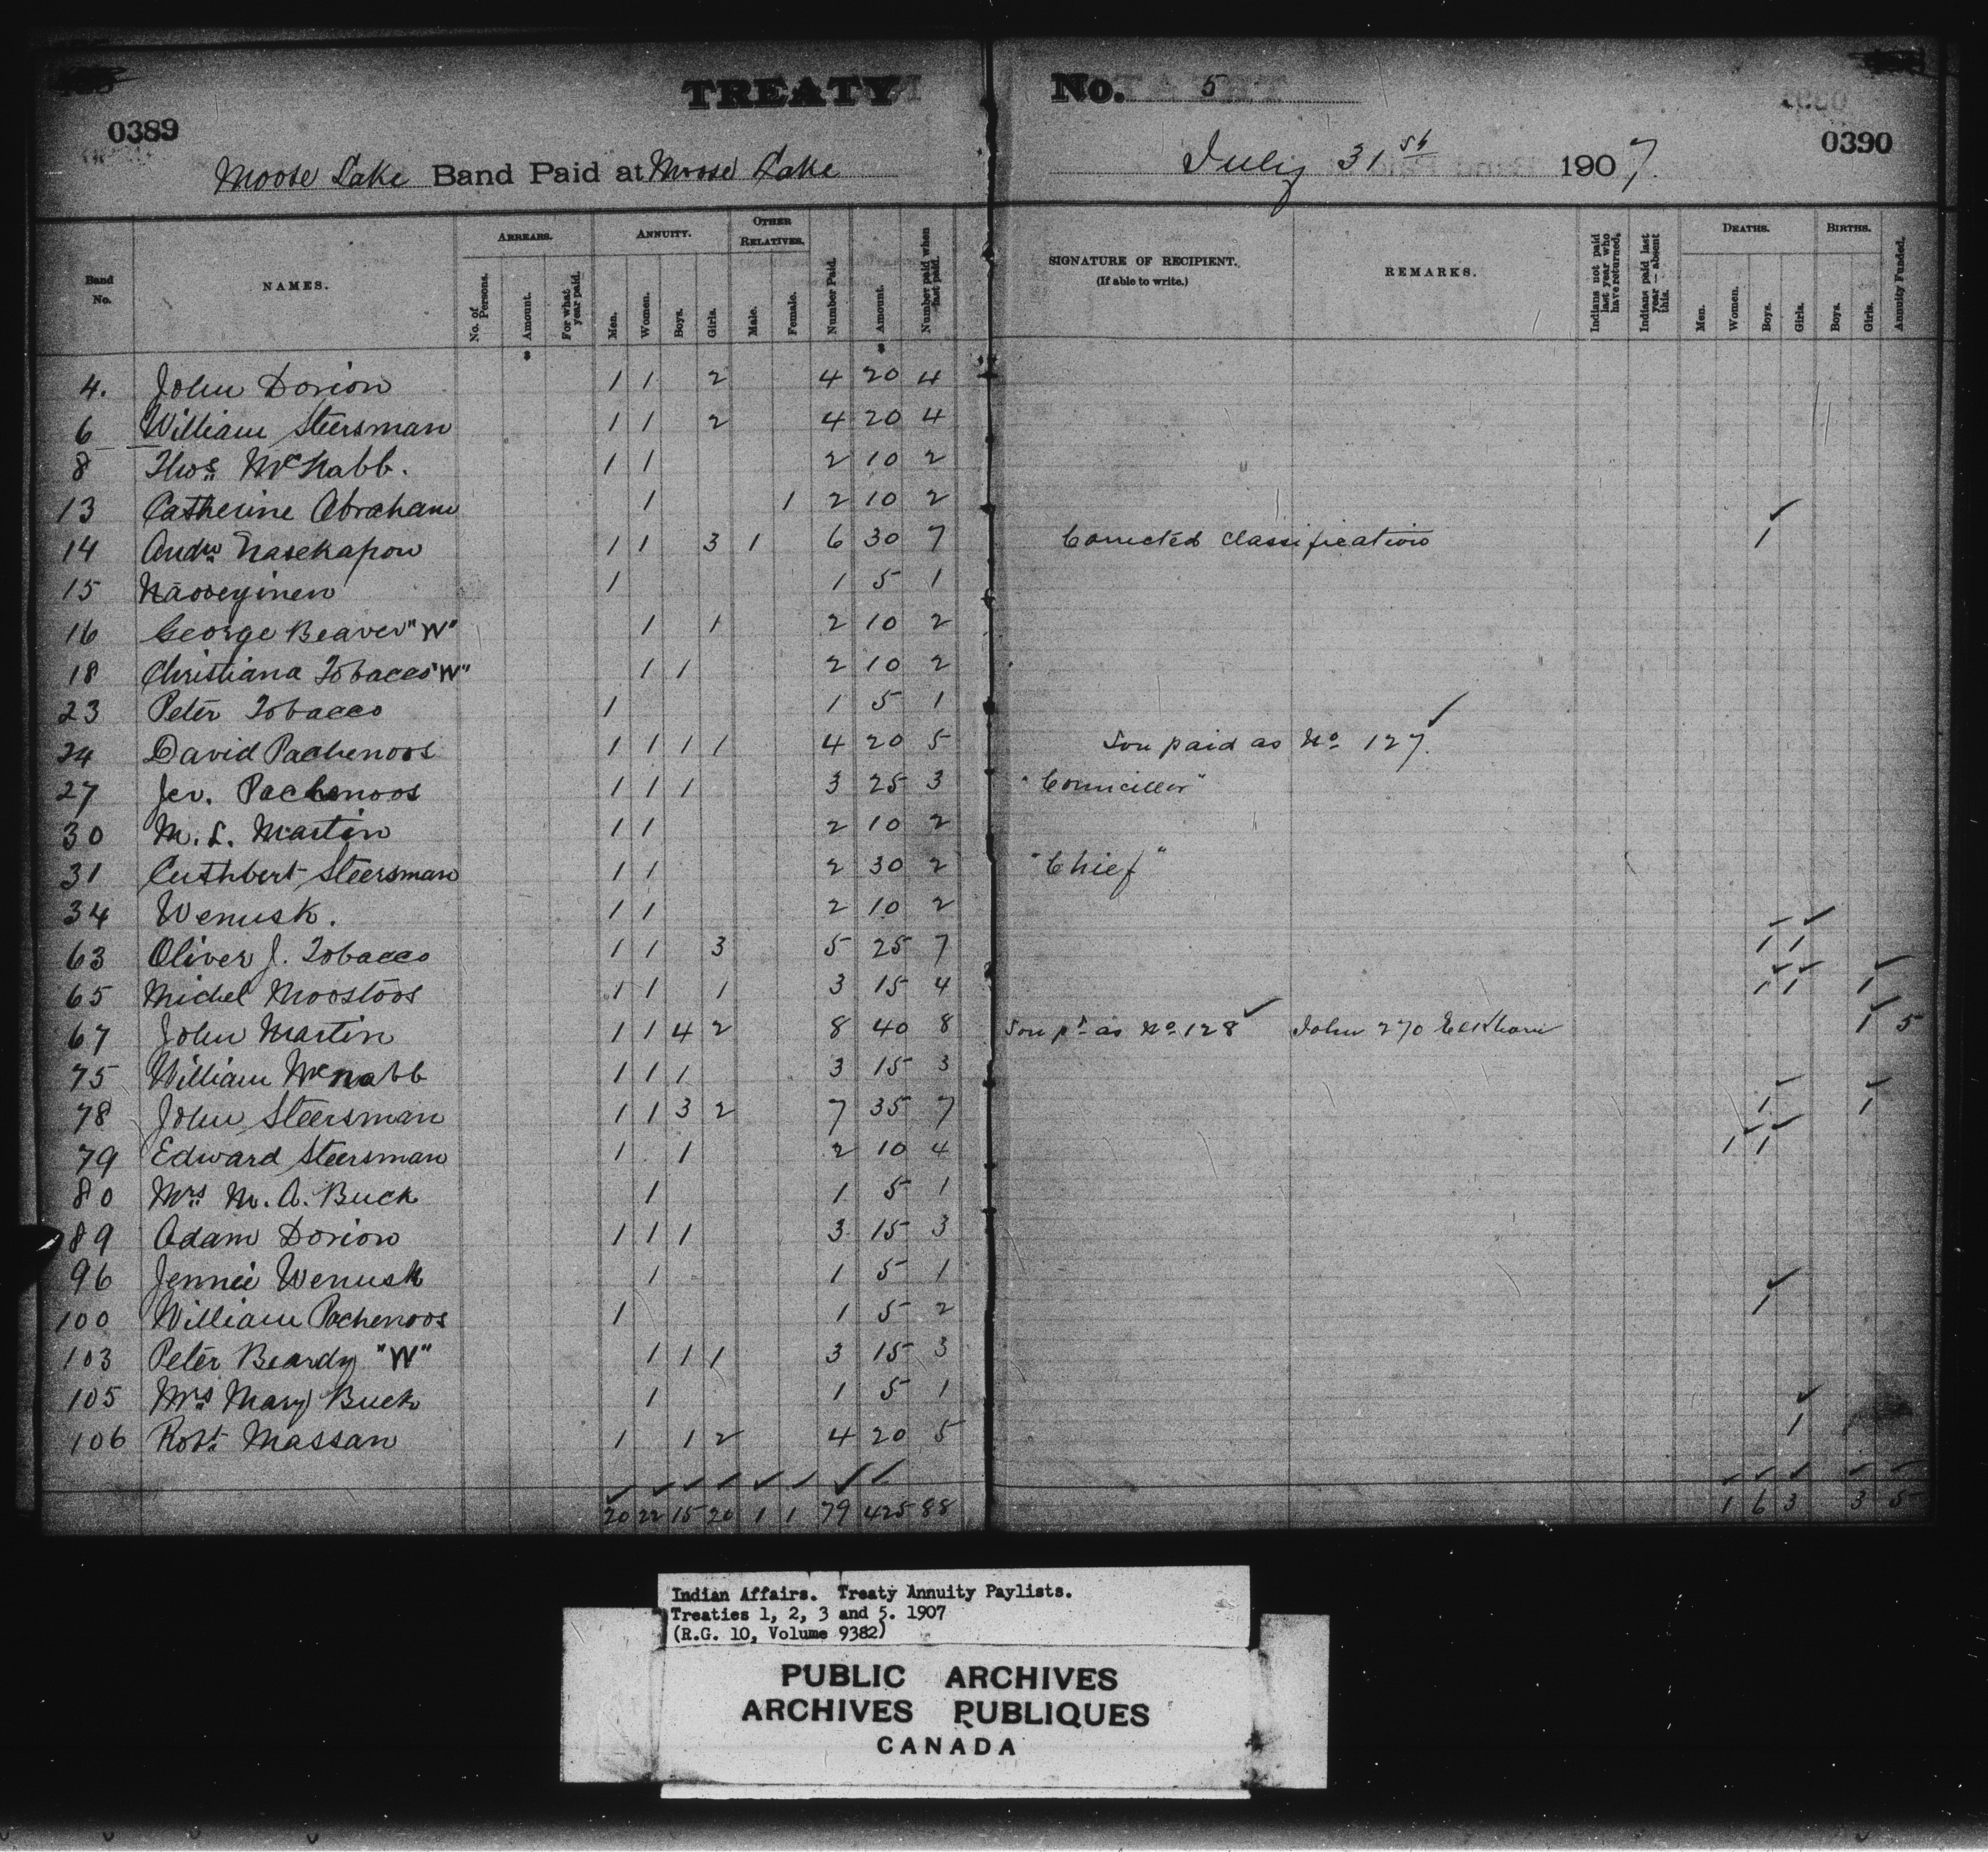 TREATY No. 5
0389
0390
Moose Lake Band Paid at Moose Lake July 31st 1907.
Band No. NAMES. ARREARS. No. of Persons. Amount. For what year paid. ANNUITY. Men. Women. Boys. Girls. OTHER RELATIVES. Male. Female. Number Paid. Amount. Number paid when last paid. SIGNATURE OF RECIPIENT. (If able to write.) REMARKS. Indians not paid last year who have returned. Indians paid last year — absent this. DEATHS. Men. Women. Boys. Girls. BIRTHS. Boys. Girls. Annuity Funded.
4. John Dorion 1 1 2 4 20 4
6 William Steersman 1 1 2 4 20 4
8 Thos McNabb. 1 1 2 10 2
13 Catherine Abraham 1 1 2 10 2
14 Andw Nasekapow 1 1 3 1 6 30 7 Corrected Classification 1
15 1 1 5 1
16 George Beaver "W" 1 1 2 10 2
18 Christiana Tobacco "W" 1 1 2 10 2
23 Peter Tobacco 1 1 5 1
24 David Pachenoos 1 1 1 1 4 20 5 Son paid as No 127.
27 Jer. Pachenoos 1 1 1 3 25 3 "Councillor"
30 M. L. Martin 1 1 2 10 2
31 Cuthbert Steersman 1 1 2 30 2 "Chief"
34 Wenusk. 1 1 2 10 2
63 Oliver J. Tobacco 1 1 3 5 25 7 1 1
65 Michel Moostoos 1 1 1 3 15 4 1 1 1
67 John Martin 1 1 4 2 8 40 8 Son pd as No 128 John 270 1 5
75 William McNabb 1 1 1 3 15 3
78 John Steersman 1 1 3 2 7 35 7 1 1
79 Edward Steersman 1 1 2 10 4 1 1
80 Mrs M. A. Buck 1 1 5 1
89 Adam Dorion 1 1 1 3 15 3
96 Jennie Wenusk 1 1 5 1
100 William Pachenoos 1 1 5 2 1
103 Peter Beardy "W" 1 1 1 3 15 3
105 Mrs Mary Buck 1 1 5 1
106 Robt Massan 1 1 2 4 20 5 1
20 22 15 20 1 1 79 425 88 1 6 3 3 5
Indian Affairs. Treaty Annuity Paylists.
Treaties 1, 2, 3 and 5. 1907
(R.G. 10, Volume 9382)
PUBLIC ARCHIVES
ARCHIVES PUBLIQUES
CANADA